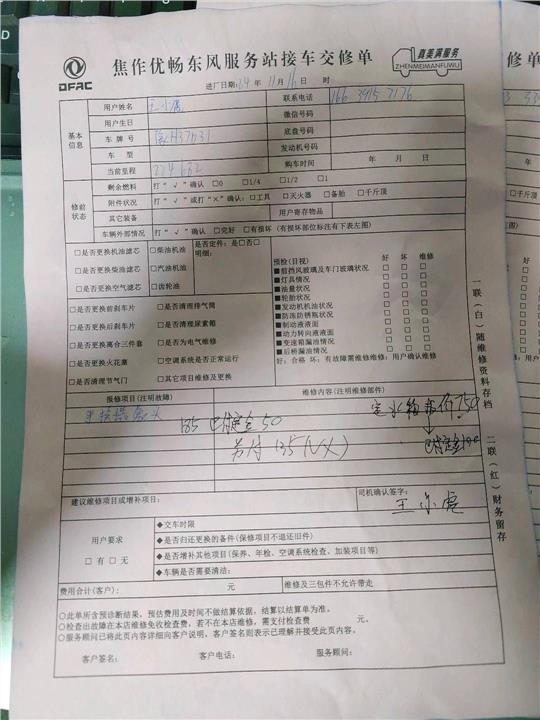 DFAC
焦作优畅东风服务站接车交修单
真美满服务
ZHENMEIMANFUWU
进厂日期:24 年 11 月 16 日 时
基本信息
用户姓名 王小虎 联系电话 166 3915 7176
用户生日 微信号码
车牌号 底盘号码
车型 发动机号码
当前里程 224662 购车时间 年 月 日
修前状态
剩余燃料 打“√”确认 □0 □1/4 □1/2 □1
附件状况 打“√”或打“×”确认:□工具 □灭火器 □备胎 □千斤顶
其它装备 用户寄存物品
车辆外部情况 打“√”确认 □完好 □有损坏(有损坏部位标注有下表左图)
□是否更换机油滤芯 □柴油机油 是否定件:是□否□
明细:
□是否更换柴油滤芯 □汽油机油
□是否更换空气滤芯 □齿轮油
预检(目视) 好 坏 维修
■前挡风玻璃及车门玻璃状况
■灯具情况
■油量状况
■轮胎状况
■发动机机油状况
■防冻防锈瓶状况
■制动液液面
■动力转向液液面
■变速箱漏油情况
■后桥漏油情况
好:合格 坏:有故障需维修维修:用户确认维修
□是否更换前刹车片 □是否清理排气筒
□是否更换后刹车片 □是否清理尿素箱
□是否更换离合三件套 □是否为电气维修
□是否更换火花塞 □空调系统是否正常运行
□是否清理节气门 □其它项目维修及更换
报修项目(注明故障) 维修内容(注明维修部件)
185 已付定金50
另付 135(VX)
定水箱 750
建议维修项目或增补项目:
司机确认签字:
王小虎
用户要求
□有 □无
◆交车时限
◆是否归还更换的备件(保修项目不退还旧件)
◆是否增补其他项目(保养、年检、空调系统检查、加装项目等)
◆车辆是否需要清洁:
费用合计(客户): 元 维修及三包件不允许带走
○此单所含预诊断结果,预估费用及时间不做结算依据,结算以结算单为准。
○检查出故障在本店维修免收检查费,若不在本店维修,需支付检查费 元。
○服务顾问已将此页内容详细向客户说明,客户签名则表示已理解并接受此页内容。
客户签名: 客户电话: 服务顾问:
一联(白)随维修资料存档
二联(红)财务留存
修单
□千斤顶